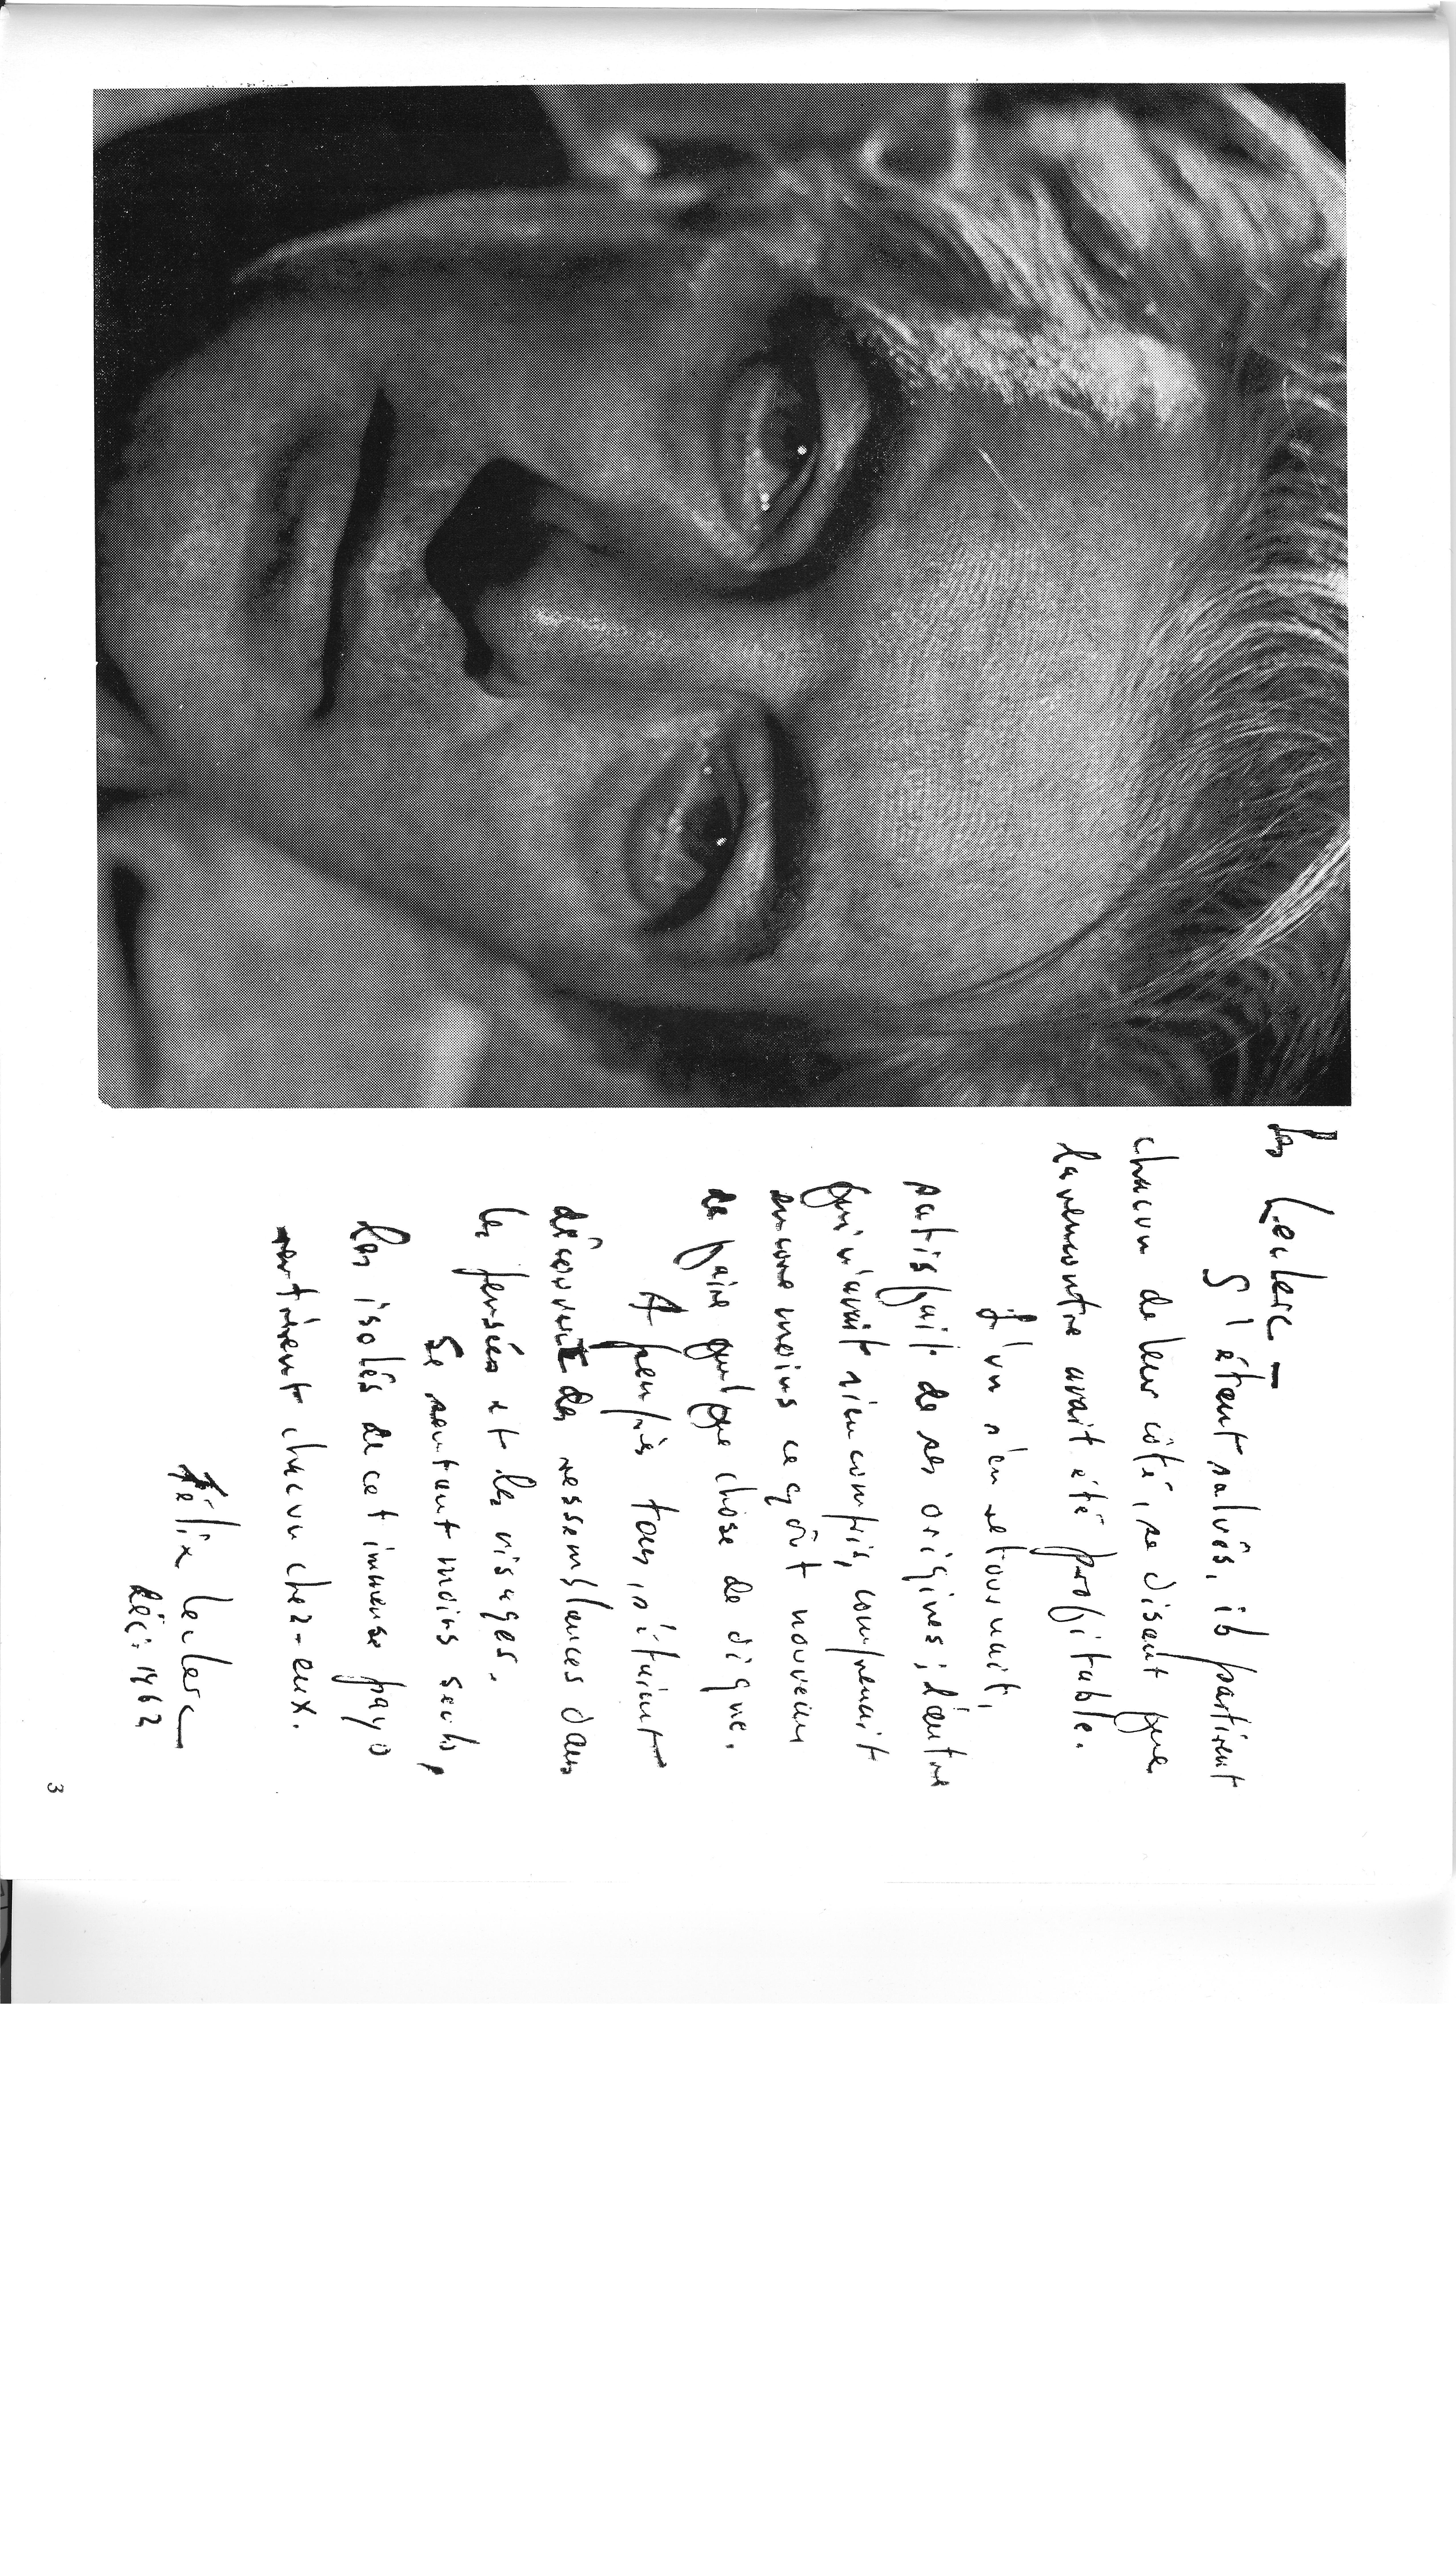 Les Leclerc –
S'étant salués, ils partirent
chacun de leur côté, se disant que
la rencontre avait été profitable.
L'un s'en retournait,
satisfait de ses origines; l'autre
qui n'avait rien compris, comprenait
encore moins ce goût nouveau
de faire quelque chose de digne.
A peu près tous, s'étaient
découvert des ressemblances dans
les pensées et les visages.
Se sentant moins seuls,
les isolés de cet immense pays
rentrèrent chacun chez-eux.
Félix Leclerc
Déc. 1962
3